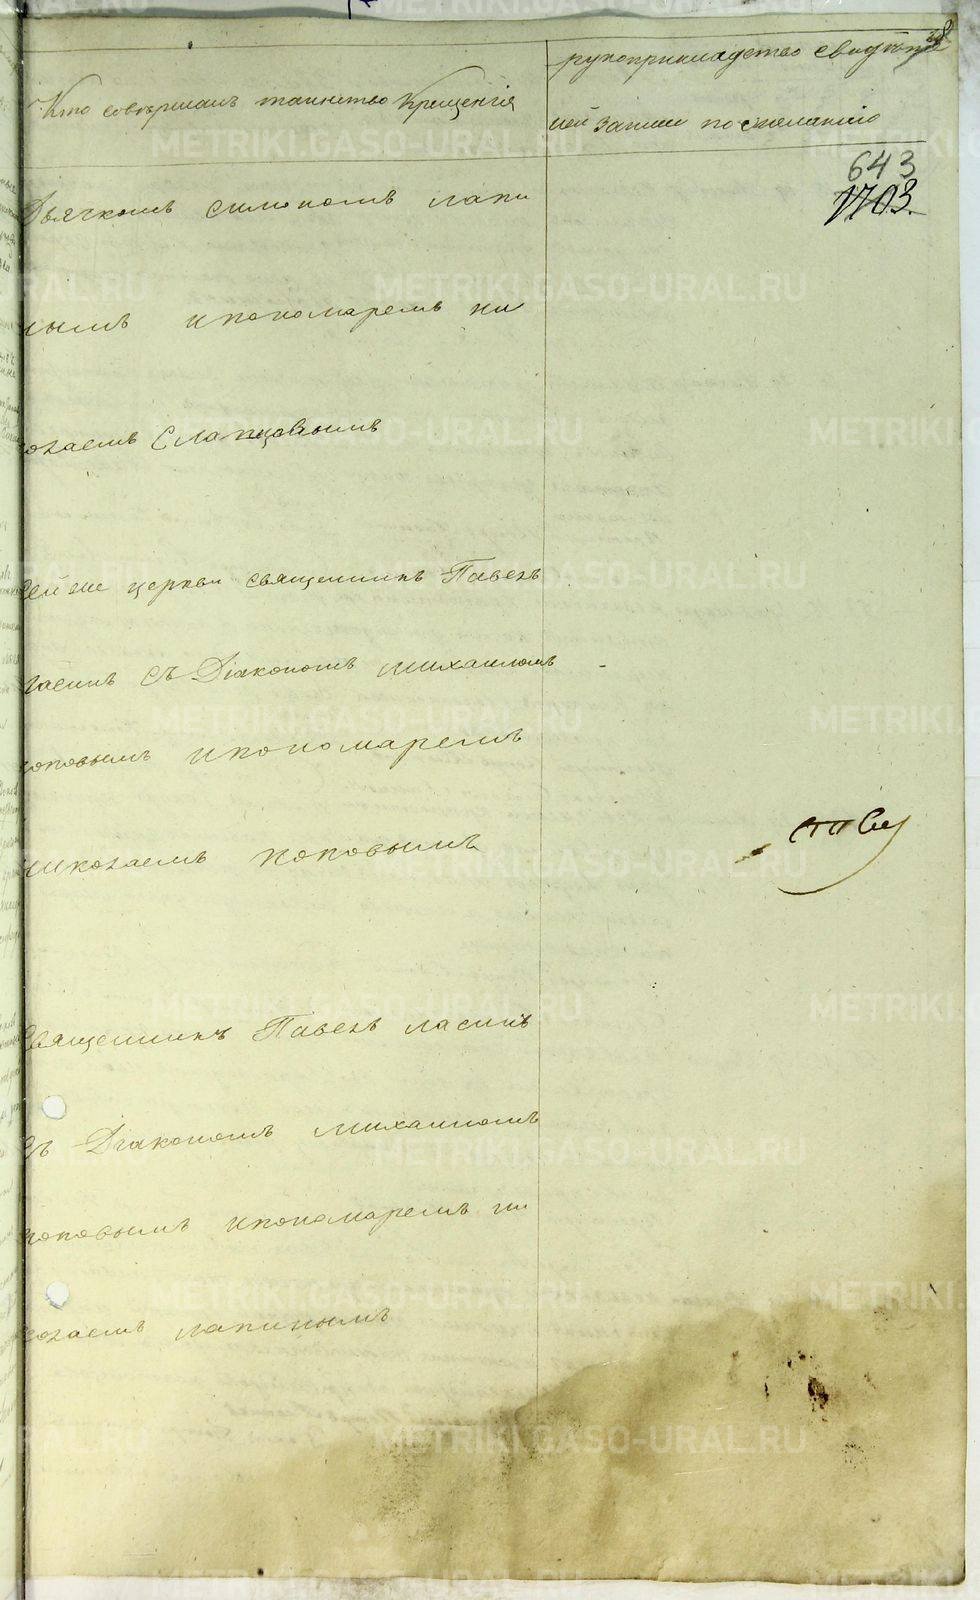 Кто совершалъ таинство Крещенія
рукоприкладство свидѣте
лей записи по желанію
643
1703.
Дьячкомъ симономъ лапи
нымъ и пономаремъ ни
колаемъ Слапцовымъ
Сей же церкви священникъ Павелъ
ласинъ съ Діакономъ михаиломъ
поповымъ и пономаремъ
николаемъ поповымъ
Священникъ Павелъ ласинъ
съ Діакономъ михаиломъ
поповымъ и пономаремъ ни
колаемъ лапинымъ
METRIKI.GASO-URAL.RU